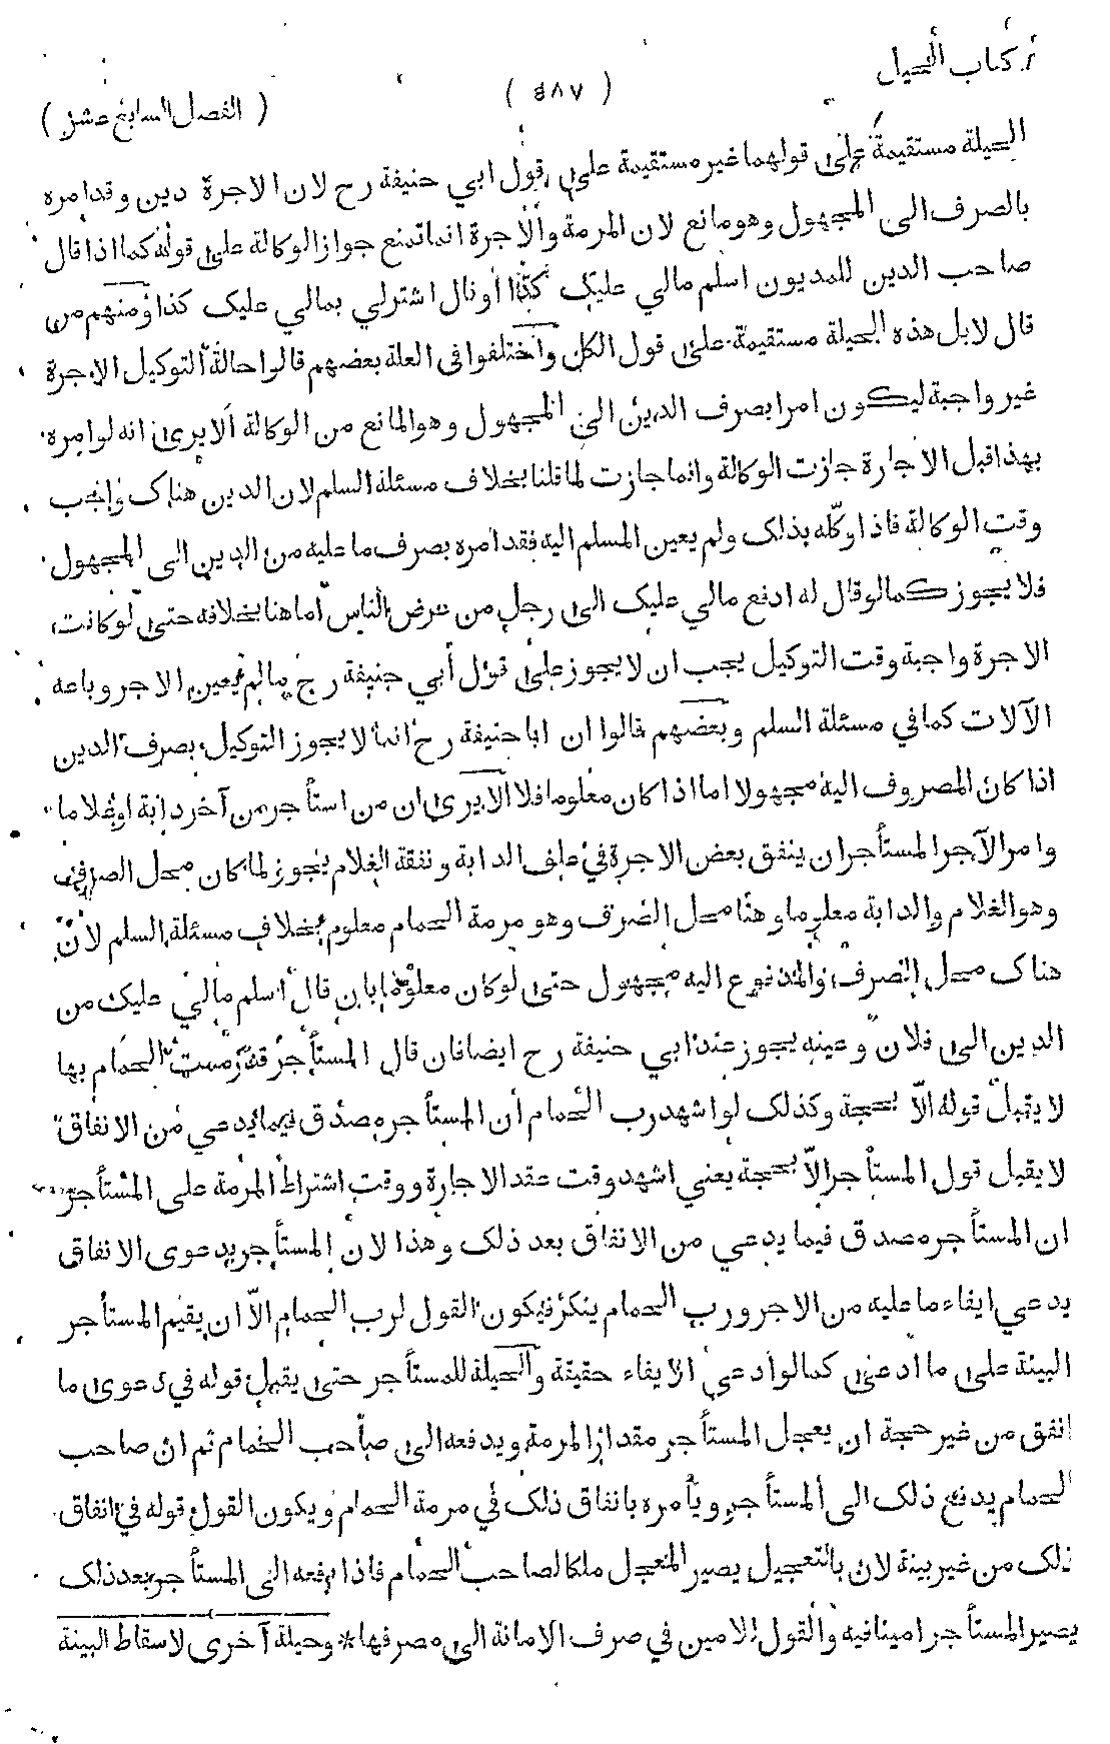 كتاب الحيل
( ٤٨٧ )
( الفصل السابع عشر )
الحيلة مستقيمة على قولهما غير مستقيمة على قول ابي حنيفة رح لان الاجرة دين وقد امره
بالصرف الى المجهول وهو مانع لان المرمة والاجرة انما تمنع جواز الوكالة على قوله كما اذا قال
صاحب الدين للمديون اسلم مالي عليك كذا او نال اشتر لي بمالي عليك كذا ومنهم من
قال لا بل هذه الحيلة مستقيمة على قول الكل واختلفوا في العلة بعضهم قالوا حالة التوكيل الاجرة
غير واجبة ليكون امرا بصرف الدين الى المجهول وهو المانع من الوكالة الا يرى انه لو امره
بهذا قبل الاجارة جازت الوكالة وانما جازت لما قلنا بخلاف مسئلة السلم لان الدين هناك واجب
وقت الوكالة فاذا وكّله بذلك ولم يعين المسلم اليه فقد امره بصرف ما عليه من الدين الى المجهول
فلا يجوز كما لو قال له ادفع مالي عليك الى رجل من عرض الناس اما هنا بخلافه حتى لو كانت
الاجرة واجبة وقت التوكيل يجب ان لا يجوز على قول أبي حنيفة رح مالم يعين الاجر وباعه
الآلات كما في مسئلة السلم وبعضهم قالوا ان ابا حنيفة رح انما لا يجوز التوكيل بصرف الدين
اذا كان المصروف اليه مجهولا اما اذا كان معلوما فلا الا يرى ان من استأجر من آخر دابة او غلاما
وامر الآجر المستأجر ان ينفق بعض الاجرة في علف الدابة ونفقة الغلام يجوز لما كان محل الصرف
وهو الغلام والدابة معلوما وهنا محل الصرف وهو مرمة الحمام معلوم بخلاف مسئلة السلم لان
هناك محل الصرف والمدفوع اليه مجهول حتى لو كان معلوما بان قال اسلم مالي عليك من
الدين الى فلان وعينه يجوز عند ابي حنيفة رح ايضا فان قال المستأجر قد رممت الحمام بها
لا يقبل قوله الّا بحجة وكذلك لو اشهد رب الحمام أن المستأجر مصدق فيما يدعي من الانفاق
لا يقبل قول المستأجر الّا بحجة يعني اشهد وقت عقد الاجارة ووقت اشتراط المرمة على المستأجر
ان المستأجر مصدق فيما يدعي من الانفاق بعد ذلك وهذا لان المستأجر بدعوى الانفاق
يدعي ايفاء ما عليه من الاجر ورب الحمام ينكر فيكون القول لرب الحمام الّا ان يقيم المستأجر
البينة على ما ادعى كما لو ادعى الايفاء حقيقة والحيلة للمستأجر حتى يقبل قوله في دعوى ما
انفق من غير حجة ان يعجل المستأجر مقدار المرمة ويدفعه الى صاحب الحمام ثم ان صاحب
الحمام يدفع ذلك الى المستأجر ويأمره بانفاق ذلك في مرمة الحمام ويكون القول قوله في انفاق
ذلك من غير بينة لان بالتعجيل يصير المعجل ملكا لصاحب الحمام فاذا دفعه الى المستأجر بعد ذلك
يصير المستأجر امينا فيه والقول للامين في صرف الامانة الى مصرفها * وحيلة آخرى لاسقاط البينة